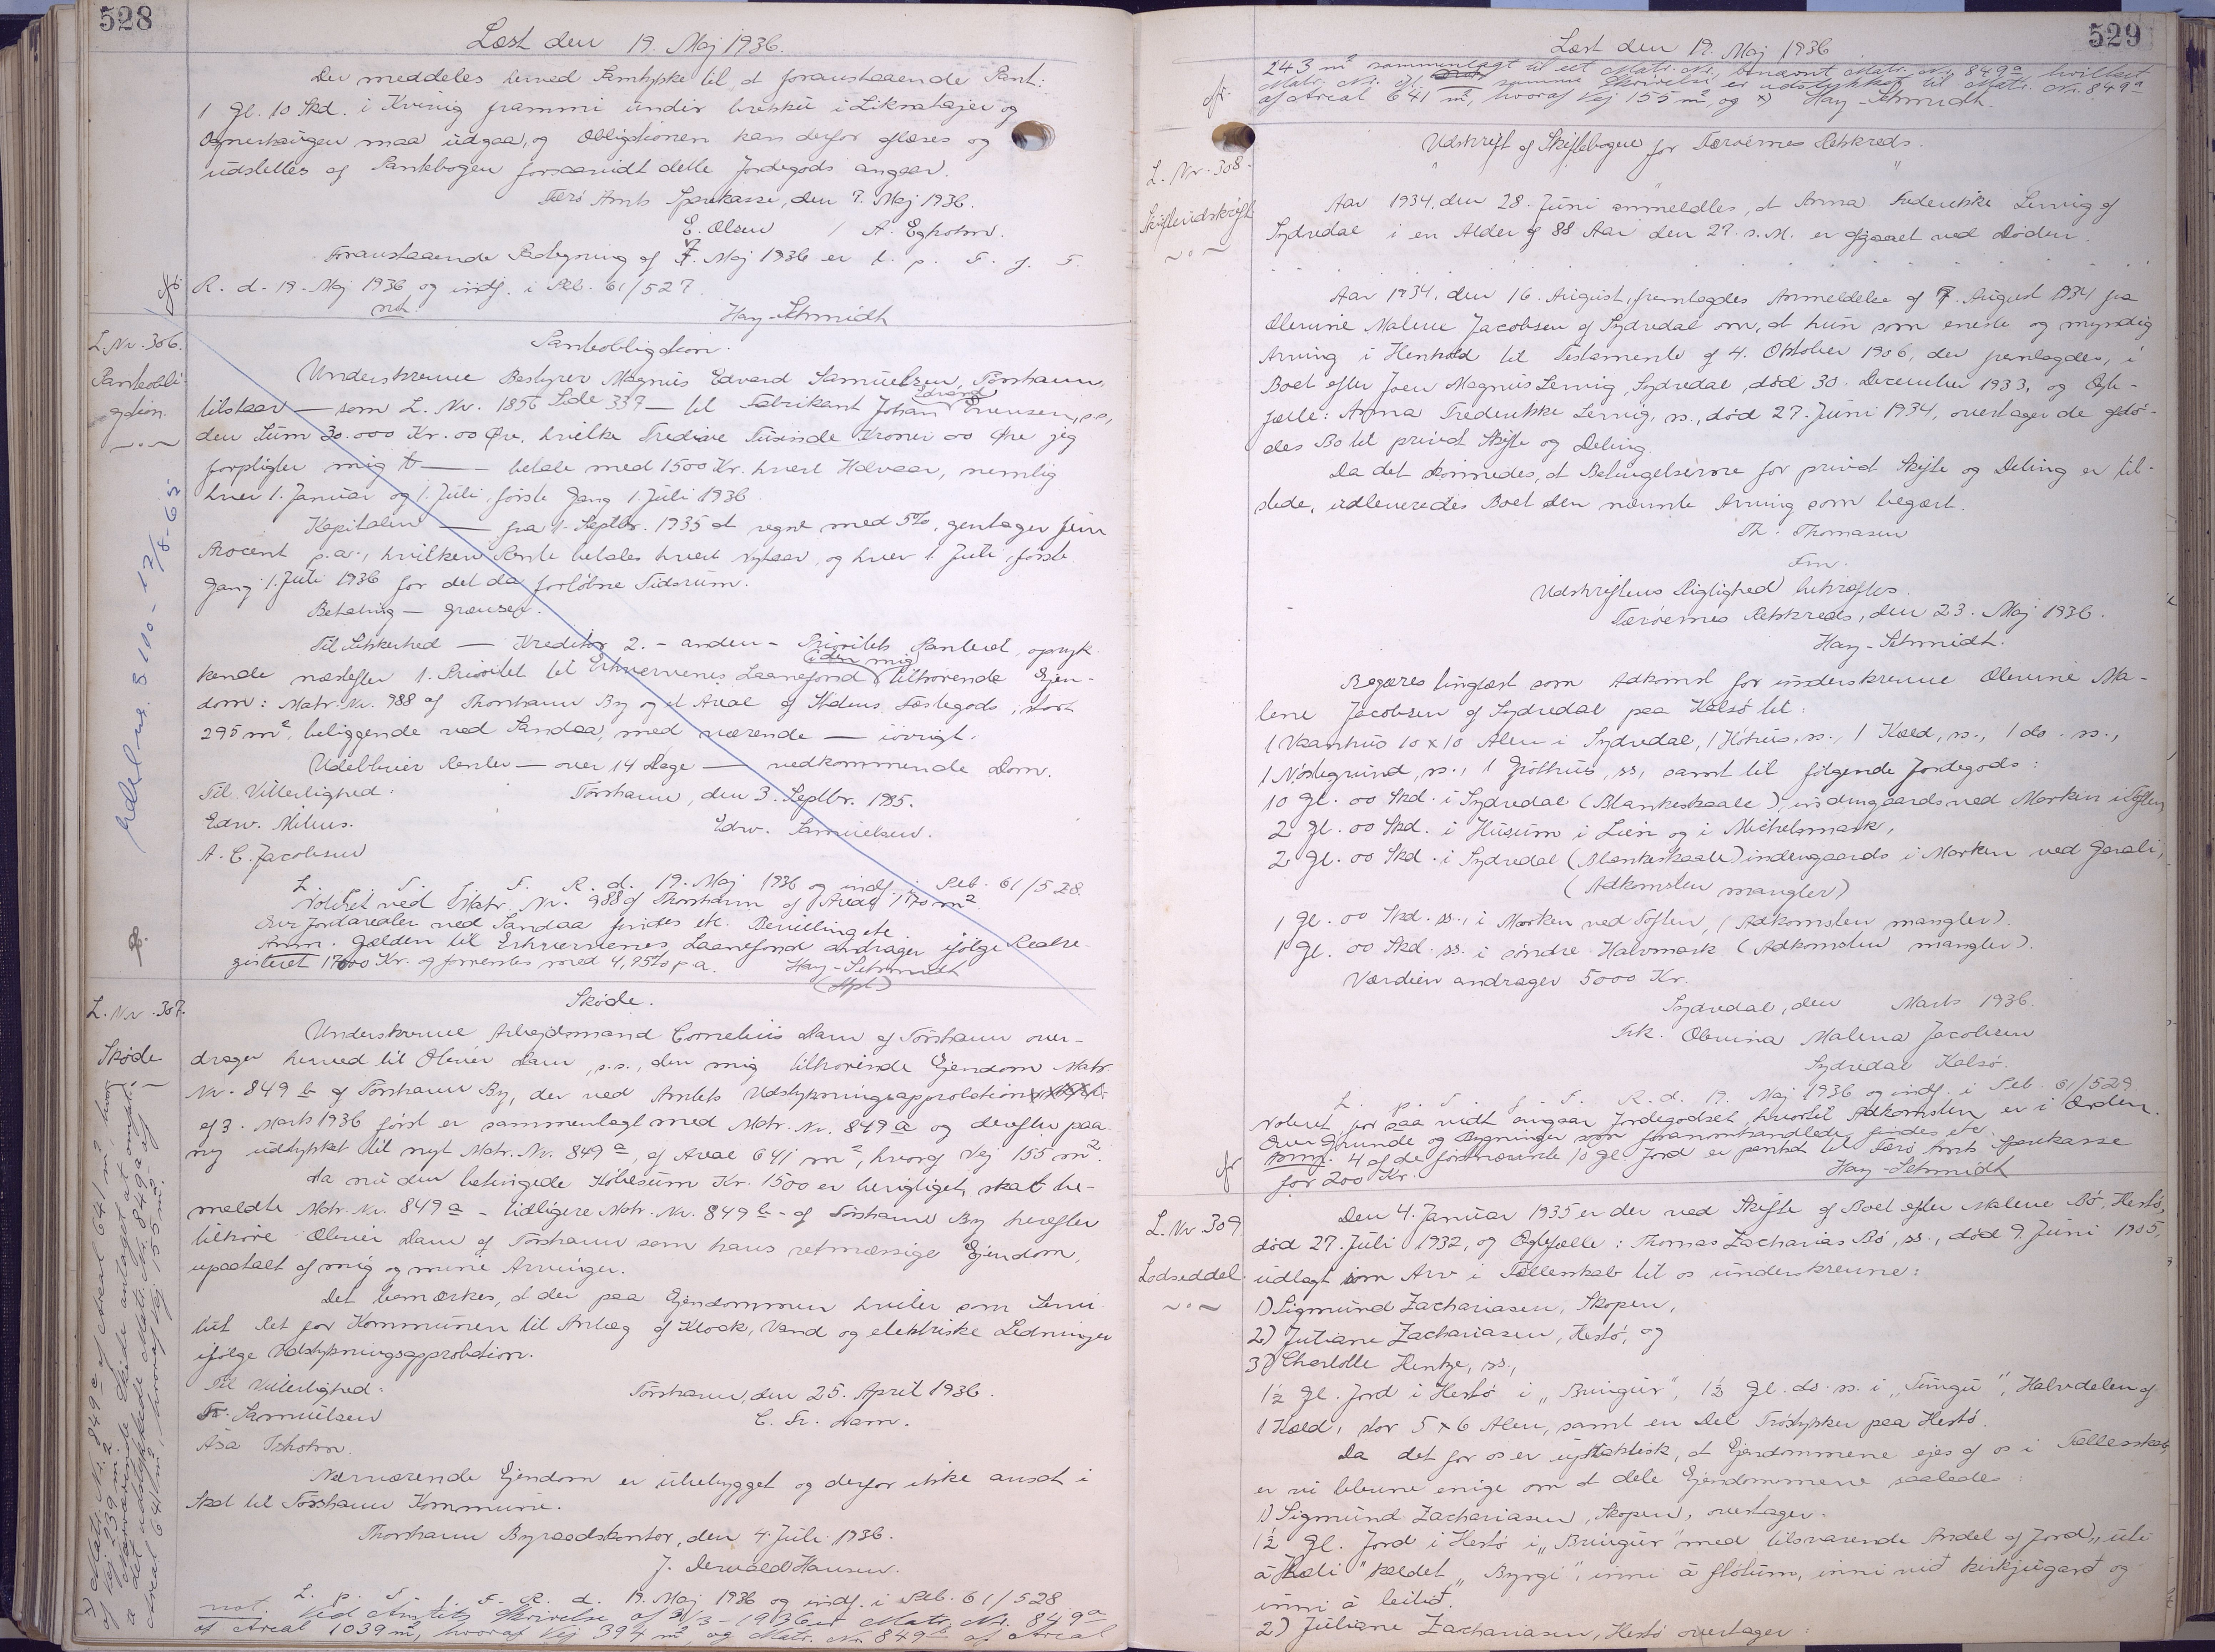 528
Læst den 19. Maj 1936.
Der meddeles herved Samtykke til at foranstaaende Pant:
1 Gl. 10 Skd. i Kvivig frammi undir brekku i Liknatajer og
maa udgaa, og Obligationen kan derfor aflæses og
udslettes af Pantebogen forsaavidt dette Jordegods angaar.
Færø Amts Sparekasse, den 7. Maj 1936.
E. Olsen / A. Egholm.
Foranstaaende Paategning af 7. Maj 1936 er l. p. T. f. F.
R. d. 19. Maj 1936 og indf. i Pcb. 61/527.
not. Hay-Schmidt
L. Nr. 306.
Pantobli-
gation.
Pantobligation.
Underskrevne Bestyrer Magnus Edvard Samuelsen, Tórshavn,
tilstaar — som L. Nr. 1856 Side 337 — til Fabrikant Johan Evensen, s.s.,
den Sum 30.000 Kr. 00 Øre, hvilke Tredive Tusinde Kroner 00 Øre jeg
forpligter mig t — betale med 1500 Kr. hvert Halvaar, nemlig
hver 1. Januar og 1. Juli, første Gang 1. Juli 1936.
Kapitalen — fra 1. Septbr. 1935 at regne med 5%, gentager fem
Procent p.a., hvilken Rente betales hvert Nytaar, og hver 1. Juli, første
Gang 1. Juli 1936 for det da forløbne Tidsrum.
Betaling — grænser.
Til Sikkerhed — Kreditor 2. - anden - Prioritets Panteret, opryk-
kende næstefter 1. Prioritet til Erhvervenes Laanefond i den mig tilhørende Ejen-
dom: Matr. Nr. 988 af Thorshavn By og et Areal af Statens Fæstegods, stort
295 m², beliggende ved Sandaa, med værende — iøvrigt.
Udebliver Renter — over 14 Dage — vedkommende Dom.
Til Vitterlighed: Tórshavn, den 3. Septbr. 1935.
Edw. Mitens. Edw. Samuelsen.
A. C. Jacobsen
L. T. F. R. d. 19. Maj 1936 og indf. i Pcb. 61/528.
Noteret ved Matr. Nr. 988 af Thorshavn af Areal 170 m².
Over Jordarealer ved Sandaa findes etc. Bevilling etc.
Anm. Gælden til Erhvervenes Laanefond andrager ifølge Realre-
gisteret 17000 Kr. og forrentes med 4,95% p.a. Hay-Schmidt
L. Nr. 307.
Skøde
Skøde.
Underskrevne Arbejdsmand Cornelius Dam af Tórshavn over-
drager herved til Oliver Dam, s.s., den mig tilhørende Ejendom Matr.
Nr. 849 b af Tórshavn By, der ved Amtets Udstykningsapprobation
af 3. Marts 1936 først er sammenlagt med Matr. Nr. 849 a og derefter paa
ny udstykket til nyt Matr. Nr. 849 a, af Areal 641 m², hvoraf Vej 155 m².
Da nu den betingede Købesum Kr. 1500 er berigtiget, skal be-
meldte Matr. Nr. 849 a - tidligere Matr. Nr. 849 b - af Tórshavn By herefter
tilhøre Oliver Dam af Tórshavn som hans retmæssige Ejendom,
upaatalt af mig og mine Arvinger.
Det bemærkes, at der paa Ejendommen hviler som Servi-
tut Ret for Kommunen til Anlæg af Kloak, Vand og elektriske Ledninger
ifølge Udstykningsapprobation.
Til Vitterlighed: Tórshavn, den 25. April 1936.
Fr. Samuelsen C. Fr. Dam.
Ása
Nærværende Ejendom er ubebygget og derfor ikke ansat i
Skat til Tórshavn Kommune.
Thorshavn Byraadskontor, den 4. Juli 1936.
J. Derwald Hansen.
L. p. T. f. F. R. d. 19. Maj 1936 og indf. i Pcb. 61/528
not. Ved Amtets Skrivelse af 3/3-1936 er Matr. Nr. 849 a
af Areal 1039 m², hvoraf Vej 394 m², og Matr. Nr. 849 b af Areal
x) Matr. Nr. 849 c af Areal 641 m², hvoraf
af Vej 239 m².
Nærværende Skøde antaget at omfatte
det udstykkede Matr. Nr. 849 a af
Areal 641 m², hvoraf Vej 155 m².
529
Læst den 19. Maj 1936
243 m² sammenlagt til eet Matr. Nr. benævnt Matr. Nr. 849 a, hvilket
Matr. Nr. if. samme Skrivelse er udstykket til Matr. Nr. 849 a
af Areal 641 m², hvoraf Vej 155 m², og x) Hay-Schmidt.
L. Nr. 308.
Skifteudskrift
Udskrift af Skiftebogen for Færøernes Retskreds.
Aar 1934, den 28. Juni anmeldtes, at Anna Frederikke Lervig af
Sydredal i en Alder af 88 Aar den 27. s. M. er afgaaet ved Døden.
Aar 1934, den 16. August, fremlagdes Anmeldelse af 7. August 1934 fra
Olevine Malene Jacobsen af Sydredal om, at hun som eneste og myndig
Arving i Henhold til Testamente af 4. Oktober 1906, der fremlagdes, i
Boet efter Joen Magnus Lervig, Sydredal, død 30. December 1933, og Ægte-
fælle: Anna Frederikke Lervig, s.s., død 27. Juni 1934, overtager de afdø-
des Bo til privat Skifte og Deling.
Da det skønnedes, at Betingelserne for privat Skifte og Deling er til-
stede, udleveredes Boet den nævnte Arving som begært.
Th. Thomasen
Fm.
Udskriftens Rigtighed bekræftes.
Færøernes Retskreds, den 23. Maj 1936.
Hay-Schmidt.
Begæres tinglæst som Adkomst for underskrevne Olevine Ma-
lene Jacobsen af Sydredal paa Kalsø til:
1 Vaanhus 10 x 10 Alen i Sydredal, 1 Høhus, s.s., 1 Kæld, s.s., 1 do. s.s.,
1 Nóstegrund, s.s., 1 Gróthus, s.s., samt til følgende Jordegods:
10 Gl. 00 Skd. i Sydredal (Blankeskaale), indengaards ved Marken i Toften,
2 Gl. 00 Skd. i Húsum i Lien og i Michelsmark,
2 Gl. 00 Skd. i Sydredal (Blankeskaale) indengaards i Marken ved Garali,
(Adkomsten mangler)
1 Gl. 00 Skd. s.s., i Marken ved Toften, (Adkomsten mangler).
1 Gl. 00 Skd. s.s. i søndre Halvmark (Adkomsten mangler).
Værdien andrager 5000 Kr.
Sydredal, den Marts 1936.
Frk. Olevina Malena Jacobsen
Sydredal Kalsø.
L. p. T. f. F. R. d. 19. Maj 1936 og indf. i Pcb. 61/529.
Noteret, for saa vidt angaar Jordegodset, hvortil Adkomsten er i Orden.
Over Grunde og Bygninger som foranomhandlede findes etc.
Anm. 4 af de førnævnte 10 Gl. Jord er pantsat til Færø Amts Sparekasse
for 200 Kr. Hay-Schmidt
L. Nr. 309.
Lodseddel.
Den 4. Januar 1935 er der ved Skifte af Boet efter Malene Bø, Hestø,
død 27. Juli 1932, og Ægtefælle: Thomas Zacharias Bø, s.s., død 9. Juni 1905,
udlagt som Arv i Fællesskab til os underskrevne:
1) Sigmund Zachariasen, Skopen,
2) Juliane Zachariasen, Hestø, og
3) Charlotte Hentze, s.s.,
1½ Gl. Jord i Hestø i „Bringur", 1½ Gl. do. s.s. i „Tungu", Halvdelen af
1 Kæld, stor 5 x 6 Alen, samt en Del Trøstykker paa Hestø.
Da det for os er upraktisk, at Ejendommene ejes af os i Fællesskab,
er vi blevne enige om at dele Ejendommene saaledes:
1) Sigmund Zachariasen, Skopen, overtager:
1½ Gl. Jord i Hestø i „Bringur" med tilsvarende Andel af Jord „úti
á Hæli" kaldet „Byrgi", inni á flötum, inni við kirkjugarð og
inni á leitið.
2) Juliane Zachariasen, Hestø overtager: